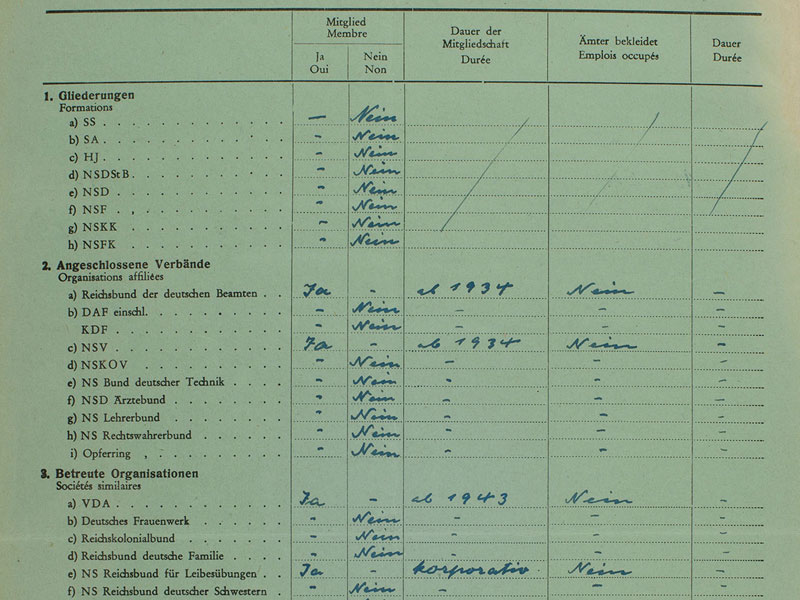 Mitglied Membre Dauer der Mitgliedschaft Durée Ämter bekleidet Emplois occupés Dauer Durée
Ja Oui Nein Non
1. Gliederungen
Formations
a) SS . . . – Nein
b) SA . . . - Nein
c) HJ . . . - Nein
d) NSDStB . . . - Nein
e) NSD . . . - Nein
f) NSF . . . - Nein
g) NSKK . . . - Nein
h) NSFK . . . - Nein
2. Angeschlossene Verbände
Organisations affiliées
a) Reichsbund der deutschen Beamten . . Ja - ab 1934 Nein –
b) DAF einschl. . . . - Nein – - -
KDF . . . - Nein - - -
c) NSV . . . Ja - ab 1934 Nein -
d) NSKOV . . . - Nein - - -
e) NS Bund deutscher Technik . . . - Nein - - -
f) NSD Ärztebund . . . - Nein - - -
g) NS Lehrerbund . . . - Nein - - -
h) NS Rechtswahrerbund . . . - Nein - - -
i) Opferring . . . - Nein - - -
3. Betreute Organisationen
Sociétés similaires
a) VDA . . . Ja - ab 1943 Nein -
b) Deutsches Frauenwerk . . . - Nein - - -
c) Reichskolonialbund . . . - Nein - - -
d) Reichsbund deutsche Familie . . . - Nein - - -
e) NS Reichsbund für Leibesübungen . . Ja - korporativ Nein -
f) NS Reichsbund deutscher Schwestern . - Nein - - -